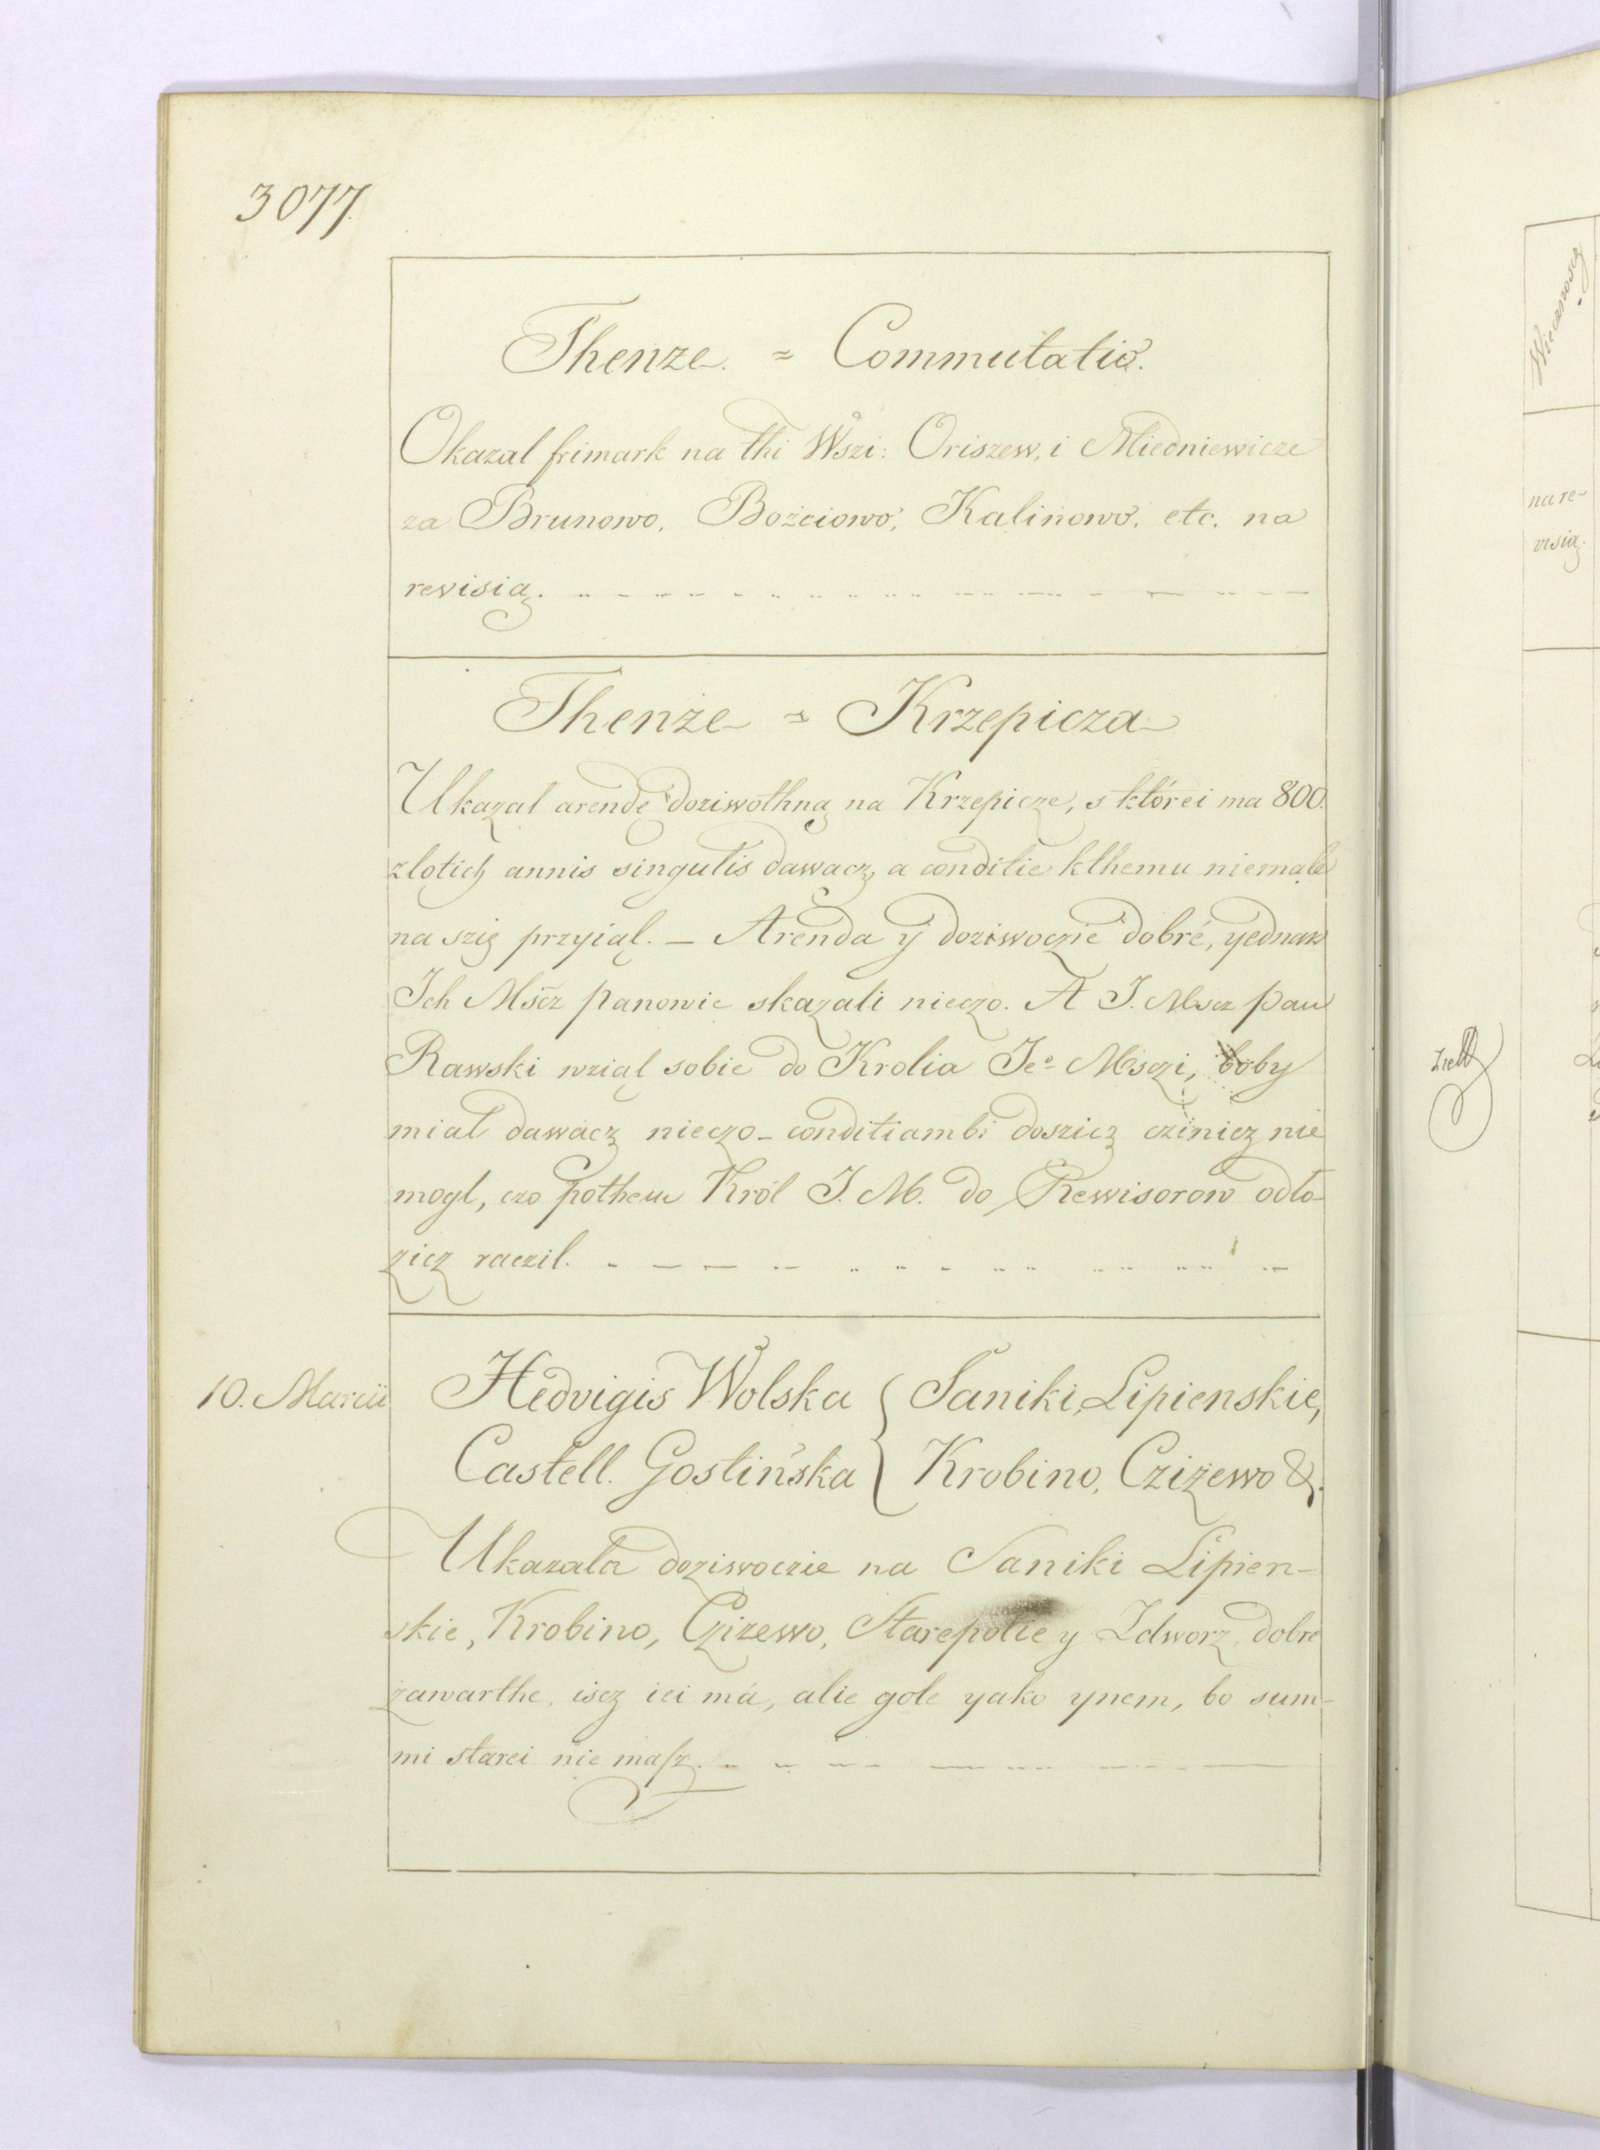 3077.
Thenze. = Commutatio.
Okazal frimark na thi Wszi: Oriszew, i Miedniewicze
za Brunowo, Bożciowo, Kalinowo, etc. na
revisią.
Thenże = Krzepicza
Ukazal arendę doziwothną na Krzepicze, s którei ma 800.
zlotich annis singulis dawacz, a conditie kthemu niemale
na szię przyiąl. — Arenda y doziwoczie dobré, yednak
Ich Mścz panowie skazali nieczo. A J. Mscz pan
Rawski wziąl sobie do Krolia Jeo Msczi, boby
mial dawacz nieczo - conditiambi doszicz czinicz nie
mogl, czo pothem Król J. M. do Rewisorow odło-
zicz raczil.
10. Marcii
Hedvigis Wolska { Saniki, Lipienskie,
Castell. Gostińska { Krobino, Cziżewo &.
Ukazała doziwoczie na Saniki Lipien-
skie, Krobino, Czizewo, Starepolie y Zdworz, dobre
zawarthe, iscz iei má, alie gole yako ynem, bo sum-
mi starei nie masz.
na re-
visią.